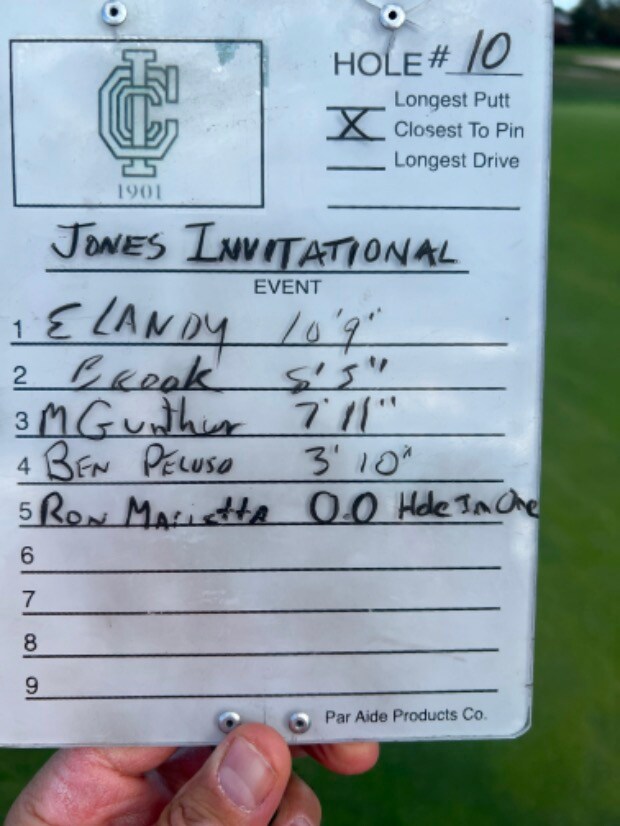 HOLE # 10
Longest Putt
X Closest To Pin
Longest Drive
1901
JONES INVITATIONAL
EVENT
1 E LANDY 10'9"
2 Brook 5'5"
3 M Gunthur 7'11"
4 BEN PELUSO 3'10"
5 RON MARIettA 0.0 Hole In One
6
7
8
9
Par Aide Products Co.